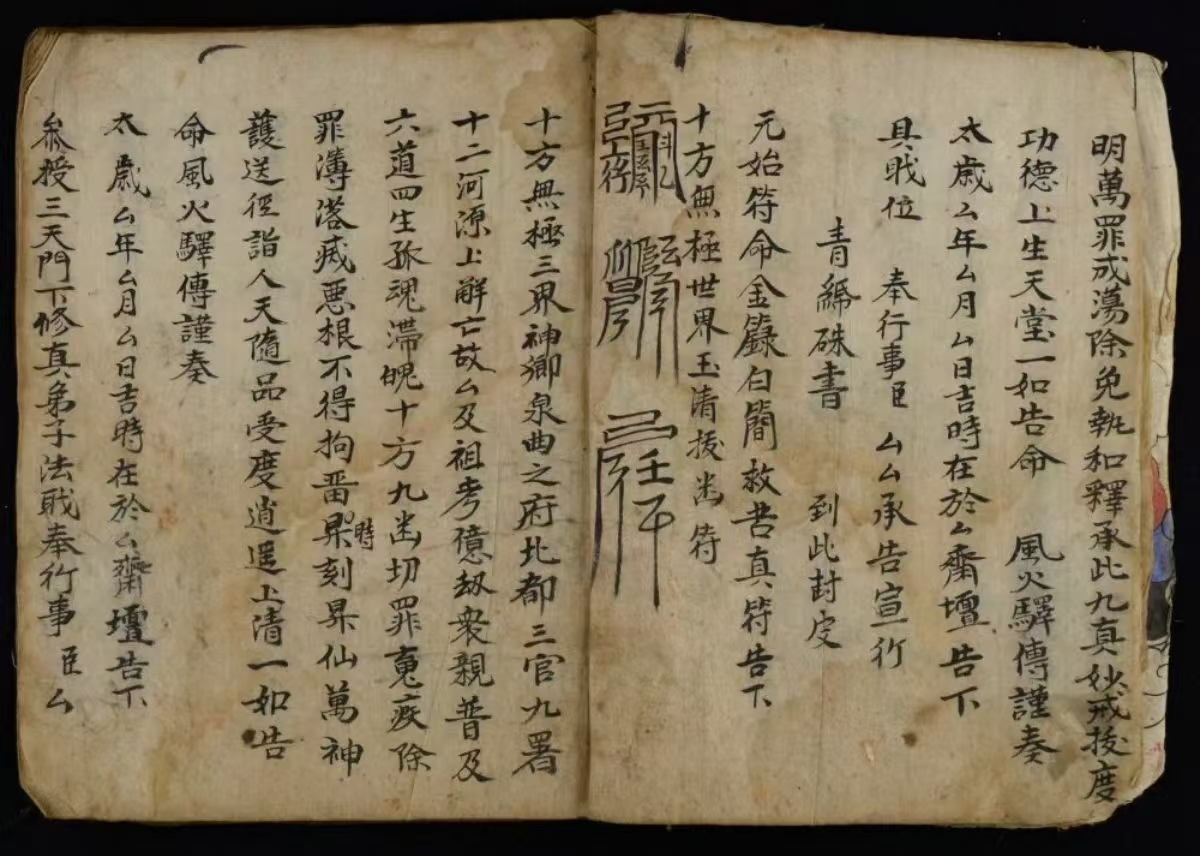 明萬罪咸蕩除免執和釋承此九真妙戒拔度
功德上生天堂一如告命 風火驛傳謹奏
太歲厶年厶月厶日吉時在於厶齋壇告下
具戝位 奉行事臣 厶厶承告宣行
青紙硃書 到此封皮
元始符命金籙白簡救苦真符告下
十方無極世界玉清拔幽符
十方無極三界神鄉泉曲之府北都三官九署
十二河源上解亡故厶及祖考億劫衆親普及
六道四生孤魂滯魄十方九幽切罪寃疾除
罪簿落滅惡根不得拘畱時刻昇仙萬神
護送徑詣人天隨品受度逍遥上清一如告
命風火驛傳謹奏
太歲厶年厶月厶日吉時在於厶齋壇告下
叅授三天門下修真弟子法戝奉行事臣厶